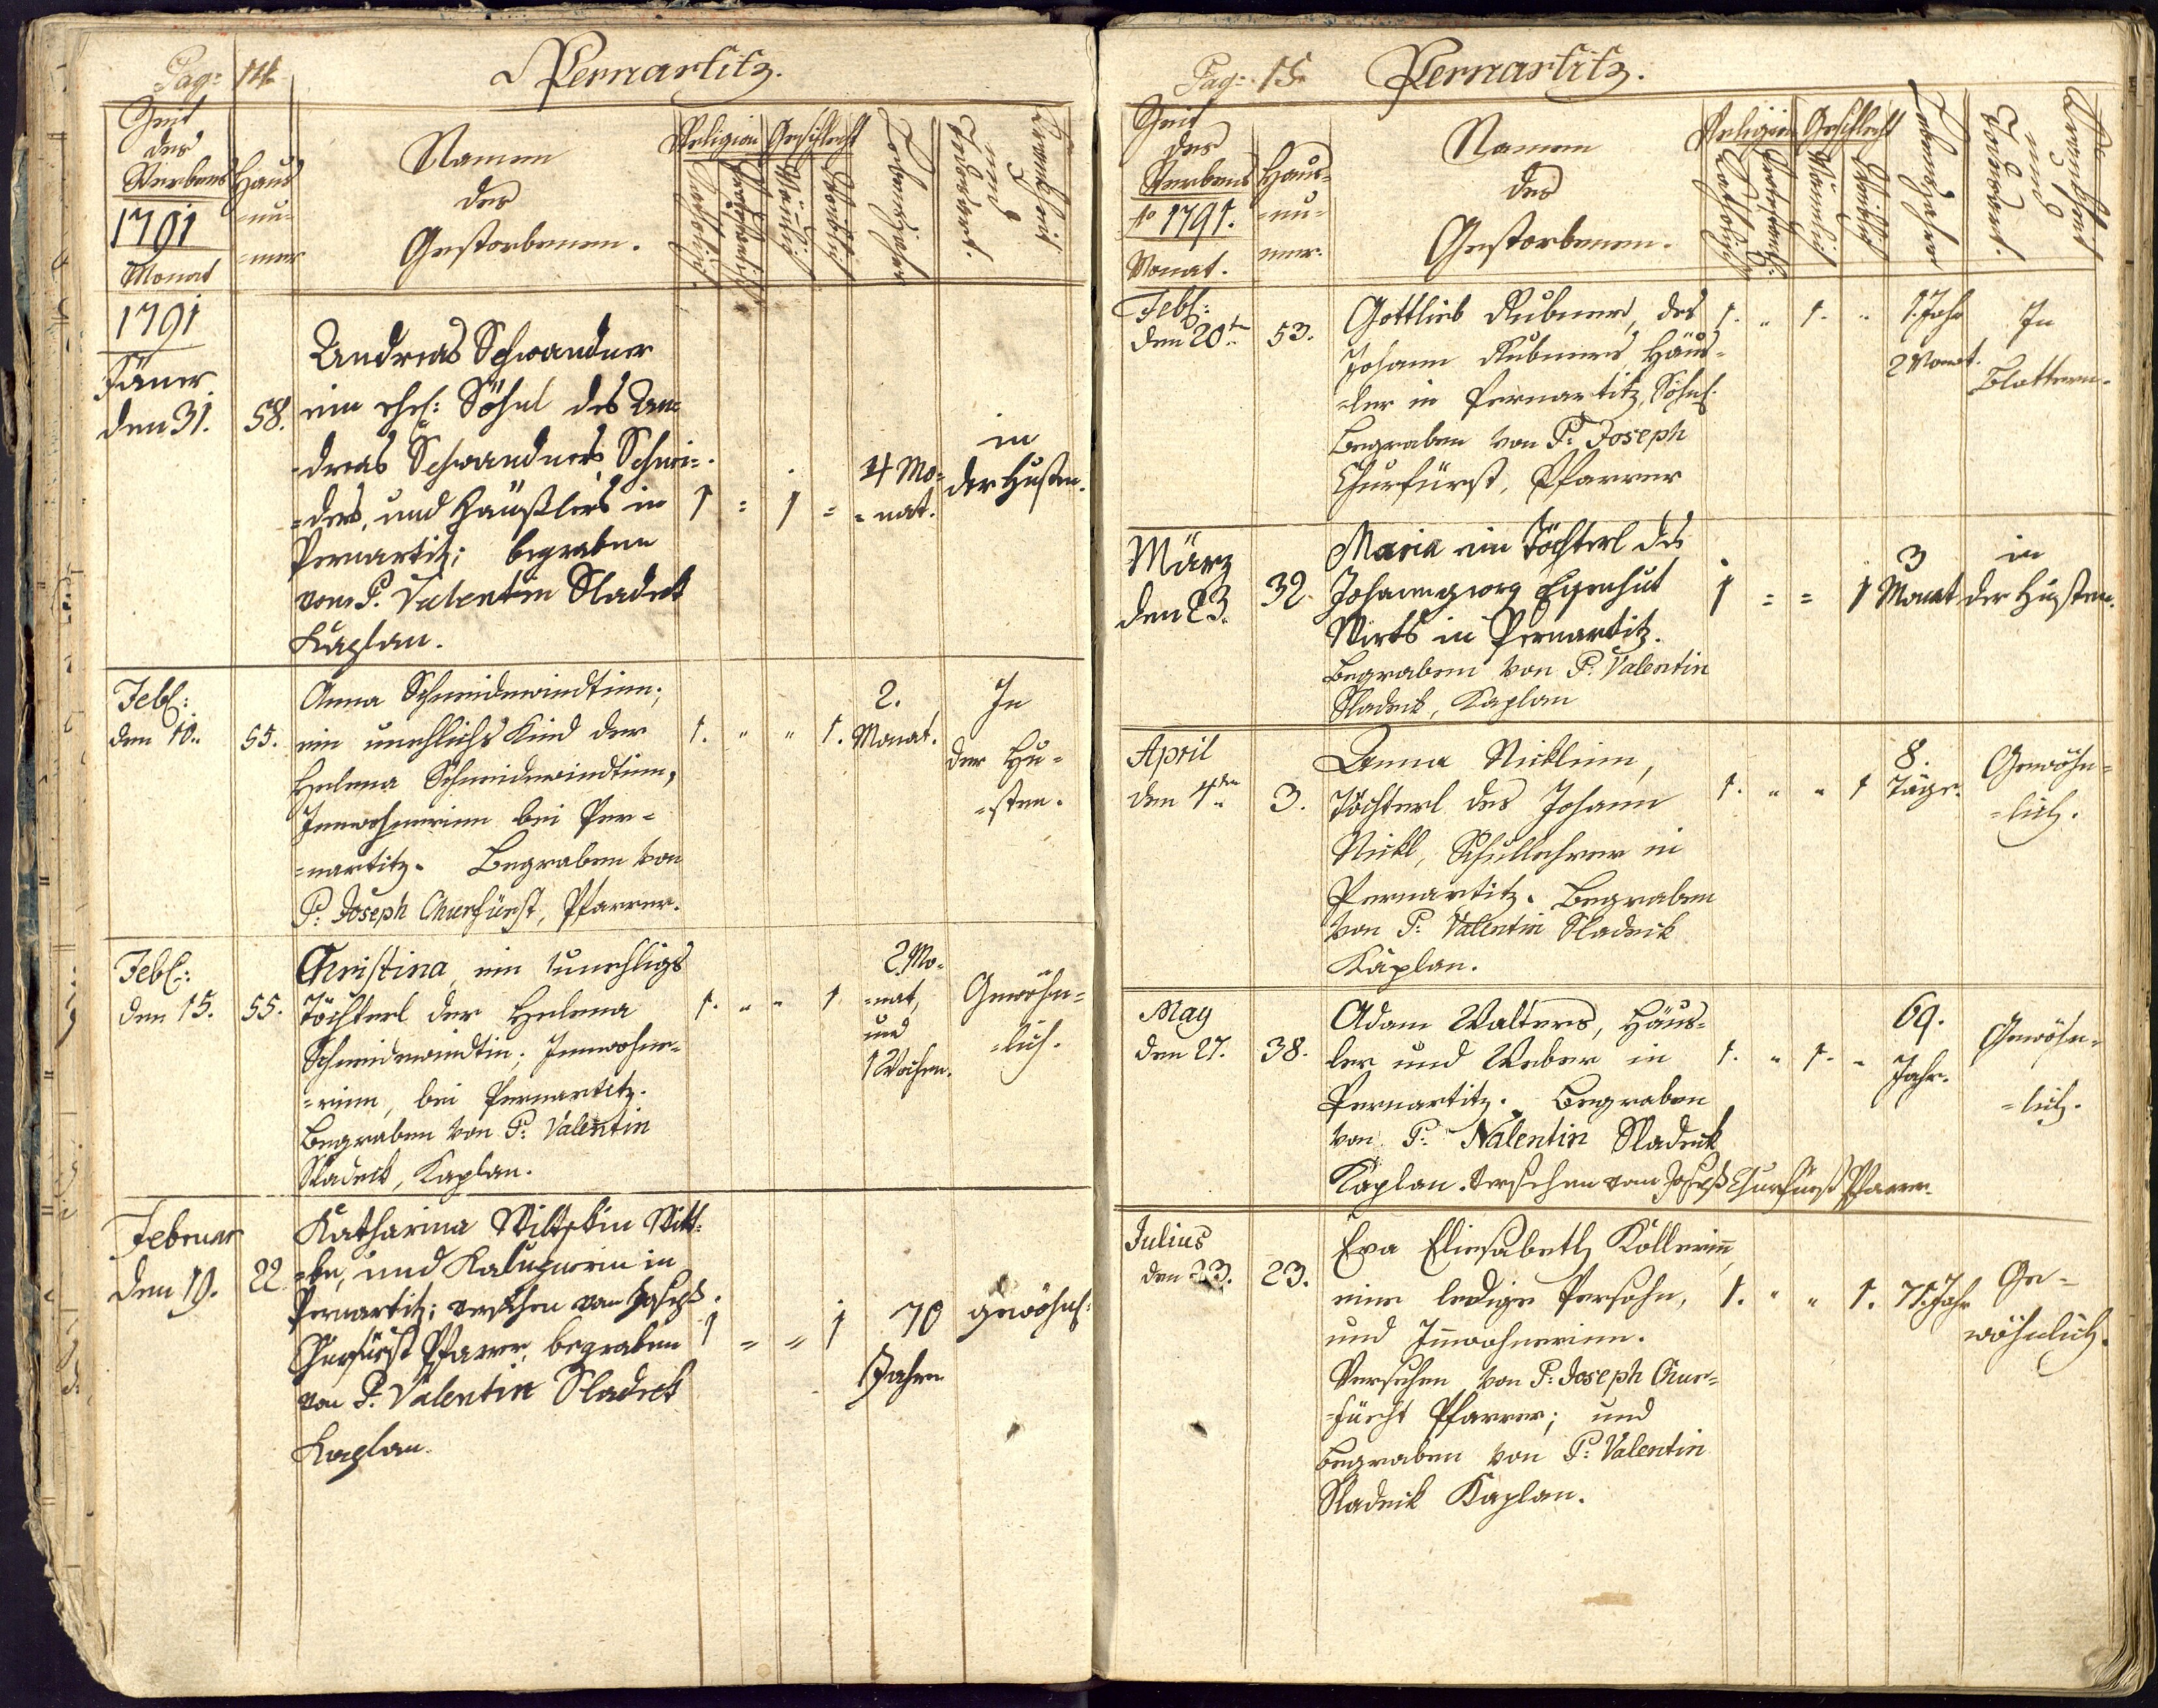 Pag: 14
Pernartitz.
Zeit
des
Sterbens
1791
Monat
Haus
=nu=
=mer
Namen
der
Gestorbenen.
Religion
Katholisch
Protestantisch
Geschlecht
Mänlich
Weiblich
Lebensjahre
Krankheit
und
Todesart.
1791
Jäner
den 31.
58.
Andreas Schwandner
ein ehel: Söhnl des An=
=dreas Schwandners Schnei=
=ders, und Häußlers in
Pernartitz; begraben
vom P. Valentin Sladek
Kaplan.
1 = 1 =
4 Mo=
=nat.
in
der Husten.
Febl:
den 10..
55.
Anna Schneidewindtinn;
ein unehlichs Kind der
Helena Schneidewindtinn,
Innwohnerinn bei Per=
=nartitz. Begraben von
P: Joseph Churfürst, Pfarrer.
1. " " 1.
2.
Monat.
In
der Hu=
=sten.
Febl:
den 15.
55.
Christina, ein unehligs
Töchterl der Helena
Schneidewindtin; Innwohne=
=rinn, bei Pernartitz.
Begraben von P: Valentin
Sladeck, Kaplan.
1. " " 1
2 Mo=
=nat,
und
1 Wochen.
Gewöhn=
=lich.
Februar
den 19.
22
Katharina Wittib
=be, und in
Pernartitz; versehen von Joseph
Churfürst Pfarrer, begraben
von P. Valentin Sladek
Kaplan.
1 = = 1
70
Jahre
gewöhnl:
Pag: 15
Pernartitz.
Zeit
des
Sterbens
Ao 1791.
Monat.
Haus=
=nu=
mer.
Namen
der
Gestorbenen.
Religion
Katholisch
Protestantisch
Geschlecht
Männlich
Weiblich
Lebensjahre
Krankheit
und
Todesart.
Febl:
den 20tn
53.
Gottlieb Rubner, des
Johann Rubners Häus=
=ler in Pernartitz, Söhnl.
Begraben von P: Joseph
Churfürst, Pfarrer
1. " 1. "
1. Jahr
2 Monat.
In
Blattern.
März
den 23.
32.
Maria ein Töchterl des
Johanngeorg Eysenhut
Wirts in Pernartitz.
Begraben von P: Valentin
Sladeck, Kaplan
1 = = 1
3
Monat
in
der Husten.
April
den 4ten
3.
Anna Nicklinn,
Töchterl des Johann
Nickl, Schullehrer in
Pernartitz. Begraben
von P: Valentin Sladeck
Kaplan.
1. " " 1
8.
Täge.
Gewöhn=
=lich.
May
den 27.
38.
Adam Walters, Häus=
ler und Weber in
Pernartitz. Begraben
von P: Valentin Sladeck
Kaplan. versehen vom Joseph Churfürst Pfarrer.
1. " 1. "
69.
Jahr.
Gewöhn=
=lich.
Julius
den 23.
23.
Eva Eliesabeth Kollerin̄,
eine ledige Persohn,
und In̄wohnerinn.
Versehen von P: Joseph Chur=
=fürst Pfarrer; und
begraben von P: Valentin
Sladeck Kaplan.
1. " " 1.
71. Jahr
Ge=
wöhnlich.